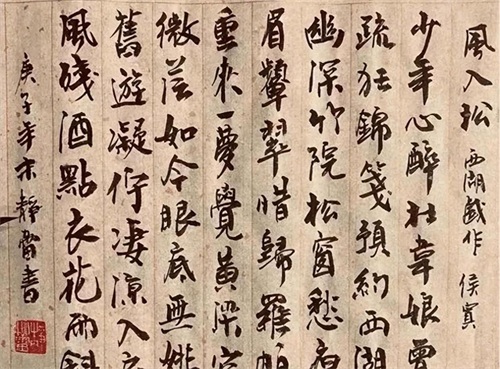 風入松 西湖戲作 侯寘
少年心醉杜韋娘曾
疏狂錦箋預約西湖
幽深竹院松窗愁
眉顰翠惜歸羅帕
重來一夢覺黄梁空
微茫如今眼底無姚
舊遊凝佇淒涼入
風殘酒點衣花雨斜
庚子年末靜雷書